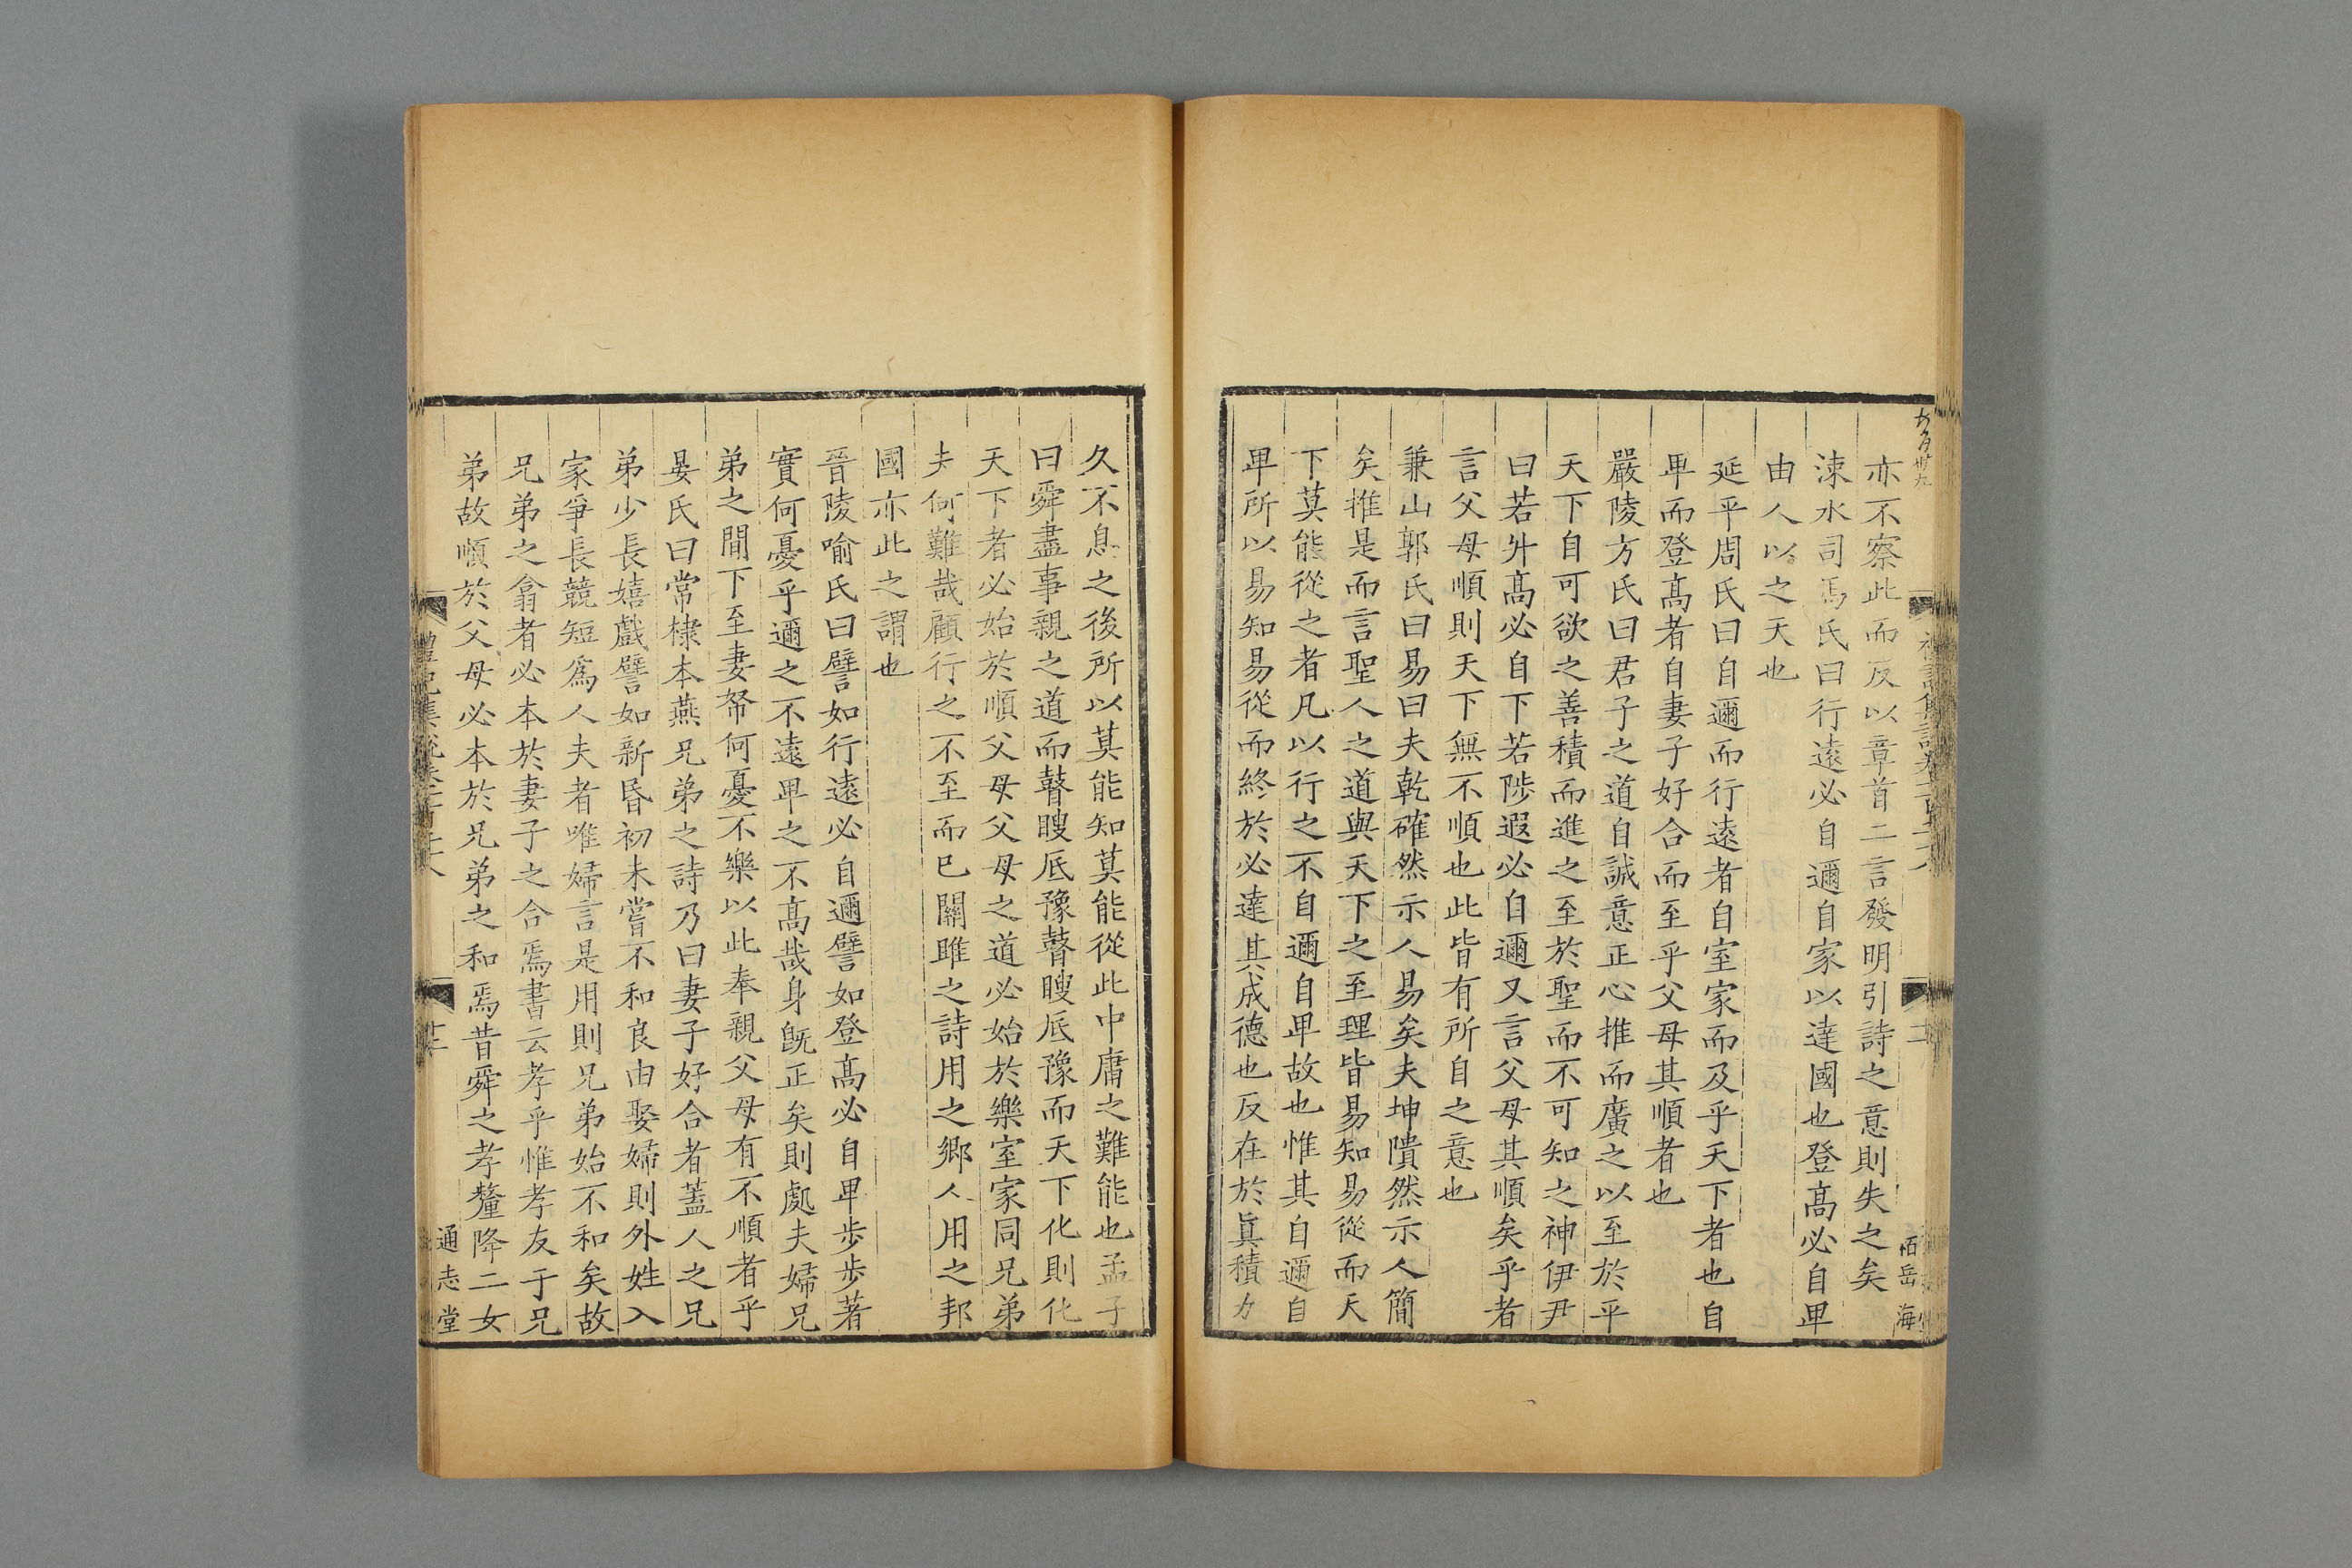 亦不察此而反以章首二言發明引詩之意則失之矣
涑水司馬氏曰行遠必自邇自家以達國也登髙必自卑
由人以之天也
延平周氏曰自邇而行遠者自室家而及乎天下者也自
卑而登髙者自妻子好合而至乎父母其順者也
嚴陵方氏曰君子之道自誠意正心推而廣之以至於平
天下自可欲之善積而進之至於聖而不可知之神伊尹
曰若升髙必自下若陟遐必自邇又言父母其順矣乎者
言父母順則天下無不順也此皆有所自之意也
兼山郭氏曰易曰夫乾確然示人易矣夫坤隤然示人簡
矣推是而言聖人之道與天下之至理皆易知易從而天
下莫能從之者凡以行之不自邇自卑故也惟其自邇自
卑所以易知易從而終於必達其成德也反在於眞積力
久不息之後所以莫能知莫能從此中庸之難能也孟子
曰舜盡事親之道而瞽瞍厎豫瞽瞍厎豫而天下化則化
天下者必始於順父母父母之道必始於樂室家同兄弟
夫何難哉顧行之不至而已關雎之詩用之鄉人用之邦
國亦此之謂也
晉陵喻氏曰譬如行遠必自邇譬如登髙必自卑步步著
實何憂乎邇之不遠卑之不髙哉身旣正矣則處夫婦兄
弟之間下至妻帑何憂不樂以此奉親父母有不順者乎
晏氏曰常棣本燕兄弟之詩乃曰妻子好合者蓋人之兄
弟少長嬉戲譬如新昏初未嘗不和良由娶婦則外姓入
家爭長競短爲人夫者唯婦言是用則兄弟始不和矣故
兄弟之翕者必本於妻子之合焉書云孝乎惟孝友于兄
弟故順於父母必本於兄弟之和焉昔舜之孝釐降二女
通志堂